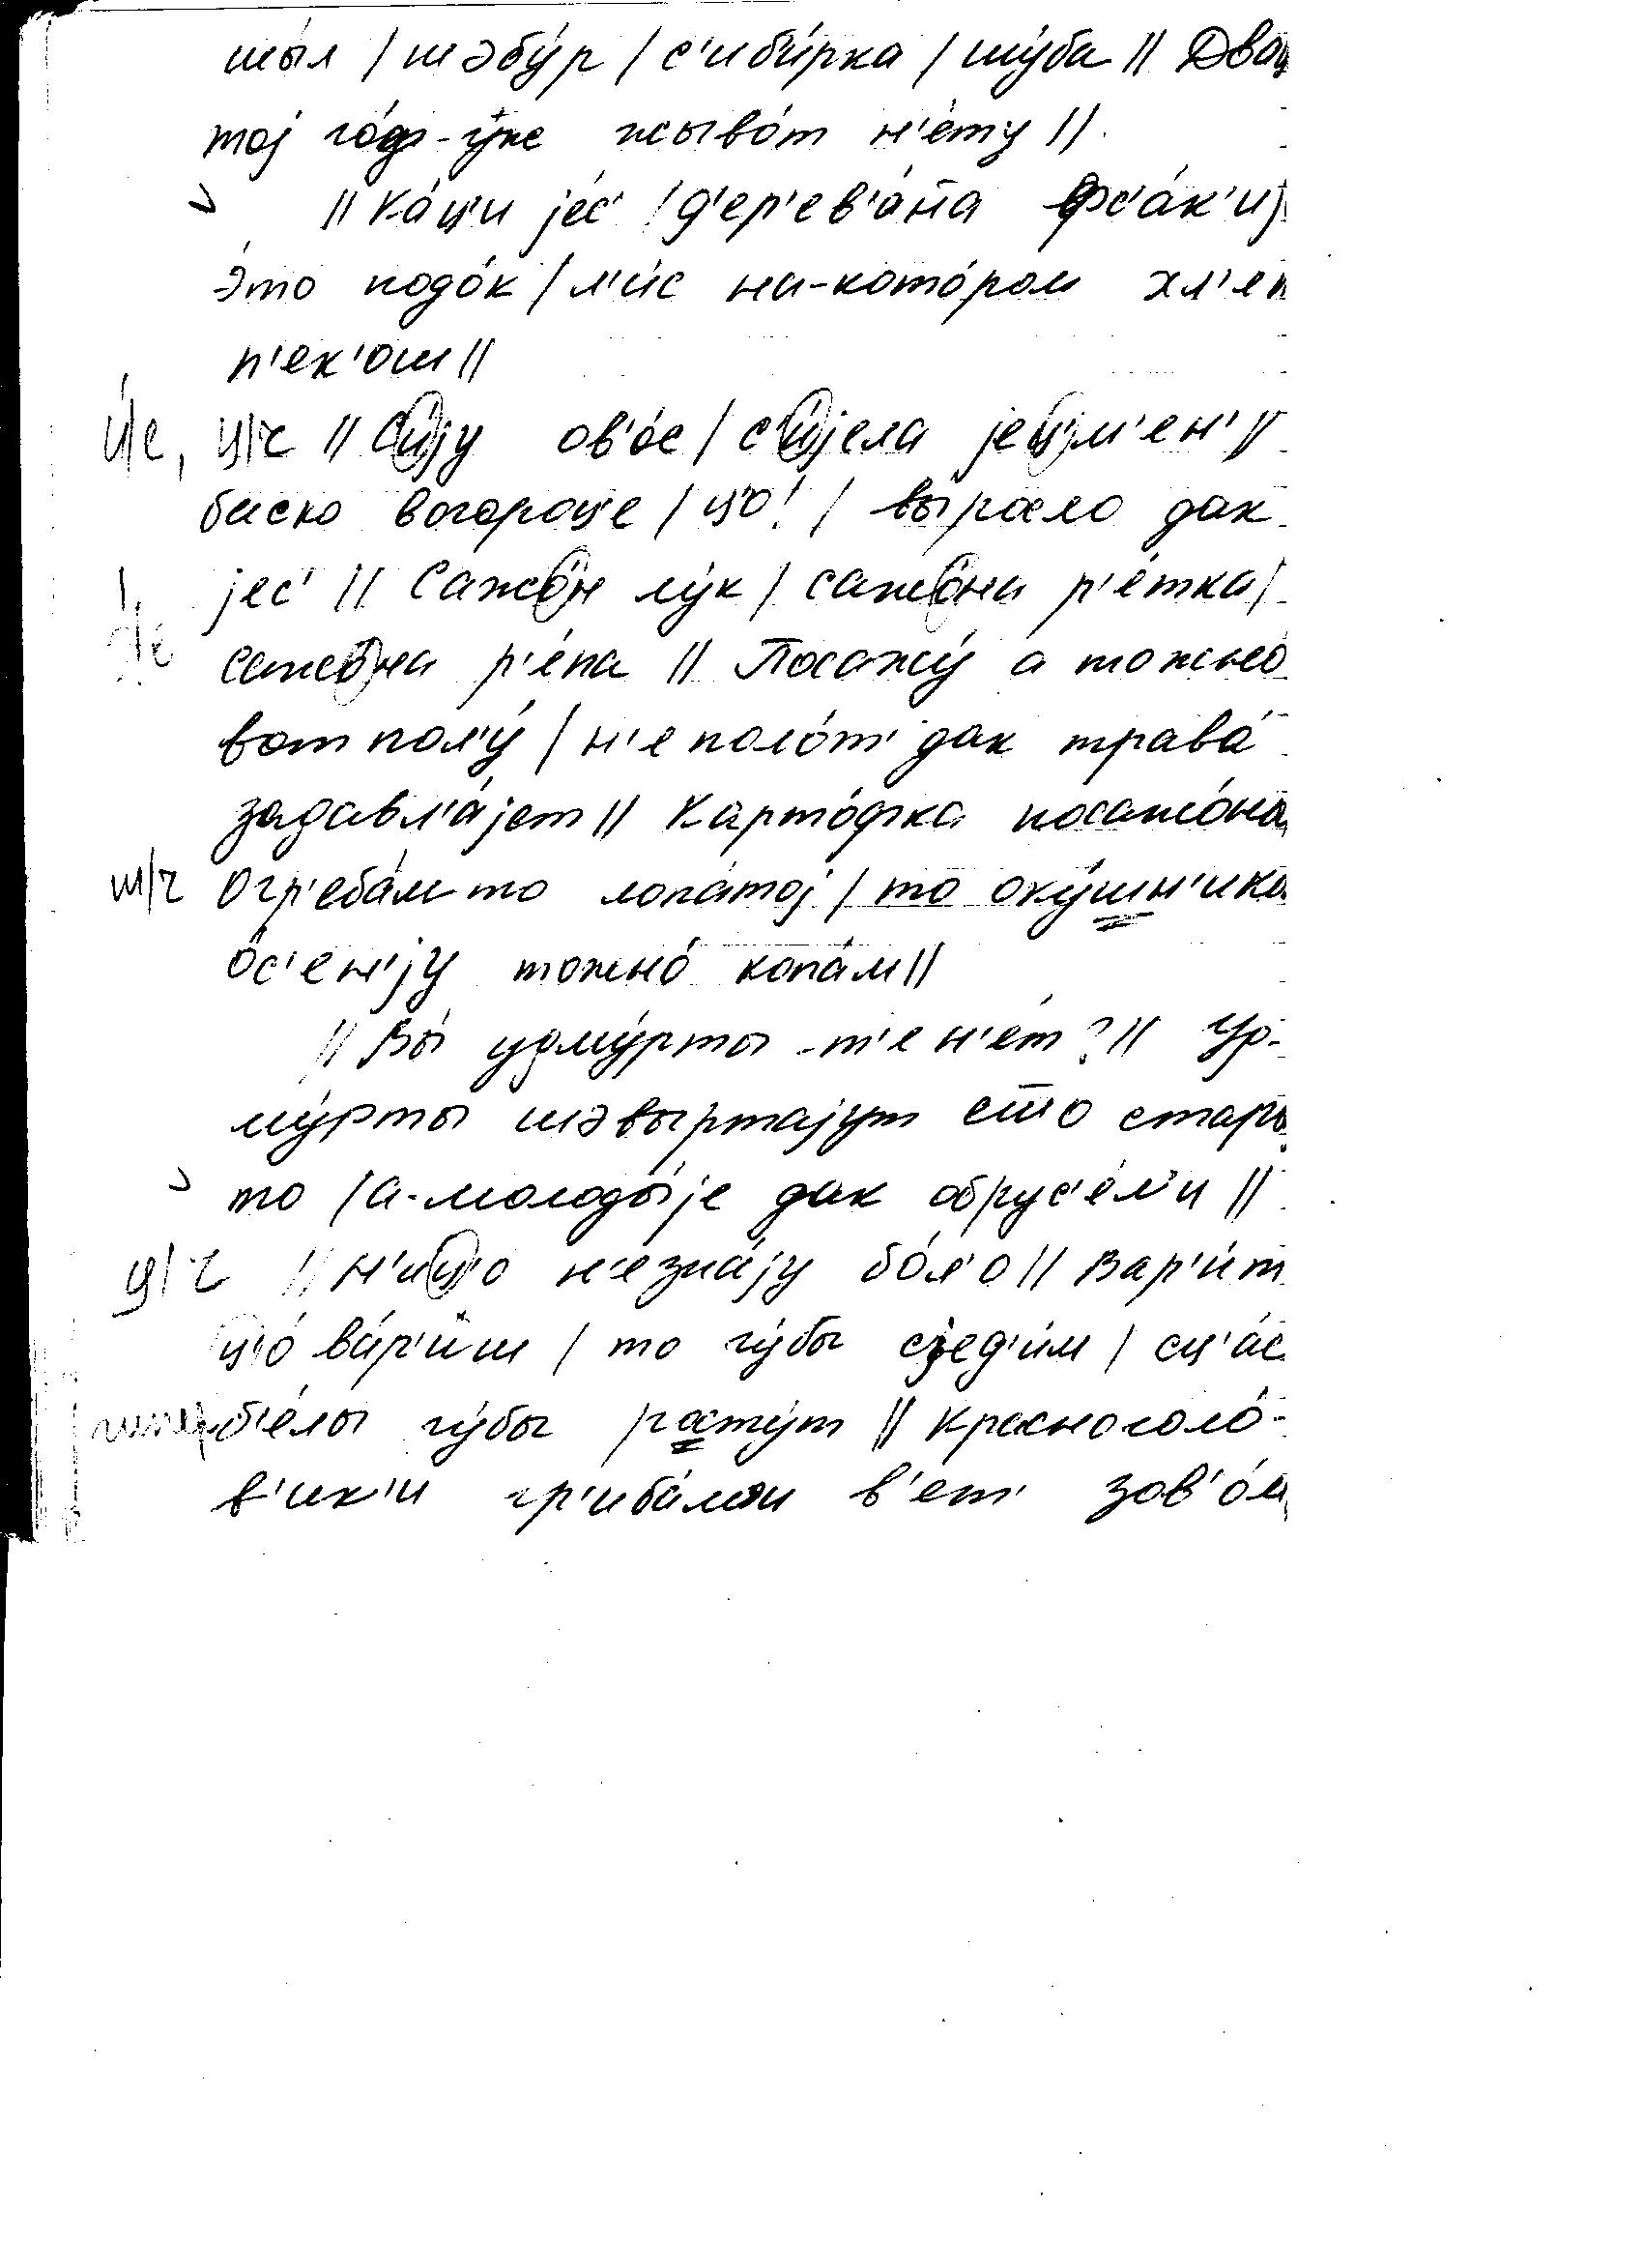 шы́л / шәбу́р / с'иби́рка / шу́ба // Двац
тој го́д-у́же жывो́т н'е́ту //
// Ка́ц'и је́с' / д'ер'ев'а́на фс'а́к'иј
э́то подо́к / л'и́с на-кото́ром хл'еп
п'ек'о́ш //
и́/е, ц/ч // Си́ју ов'о́с / с'и́јела јец'м'ен' //
баско вогороц'е / ц'о! / выросло дак
јес' // Сажо́н лу́к / сажо́на р'е́тка /
сажо́на р'е́па // Посажу́ а тожно́
вот пол'у́ / н'е поло́т' дак трава́
задавл'а́јет // Карто́фка посажо́на
ш/ч Огр'еба́м то лопа́тој / то оку́шн'ико
о́с'ен'ју тожно́ копа́м //
// Вы́ удму́рты -т'е н'е́т? // Уд-
му́рты шәвыртајут сто стары
то / а-молоды́је дак обрус'е́л'и //
ц/ч // Н'иц'о н'езна́ју бо́л'о // Вар'и́т
ц'о́ ва́р'иш / то гу́бы сјед'и́м / сц'а́с
б'е́лы гу́бы расту́т // Красноголо́-
в'ик'и гр'иба́ми в'ет' зов'о́м